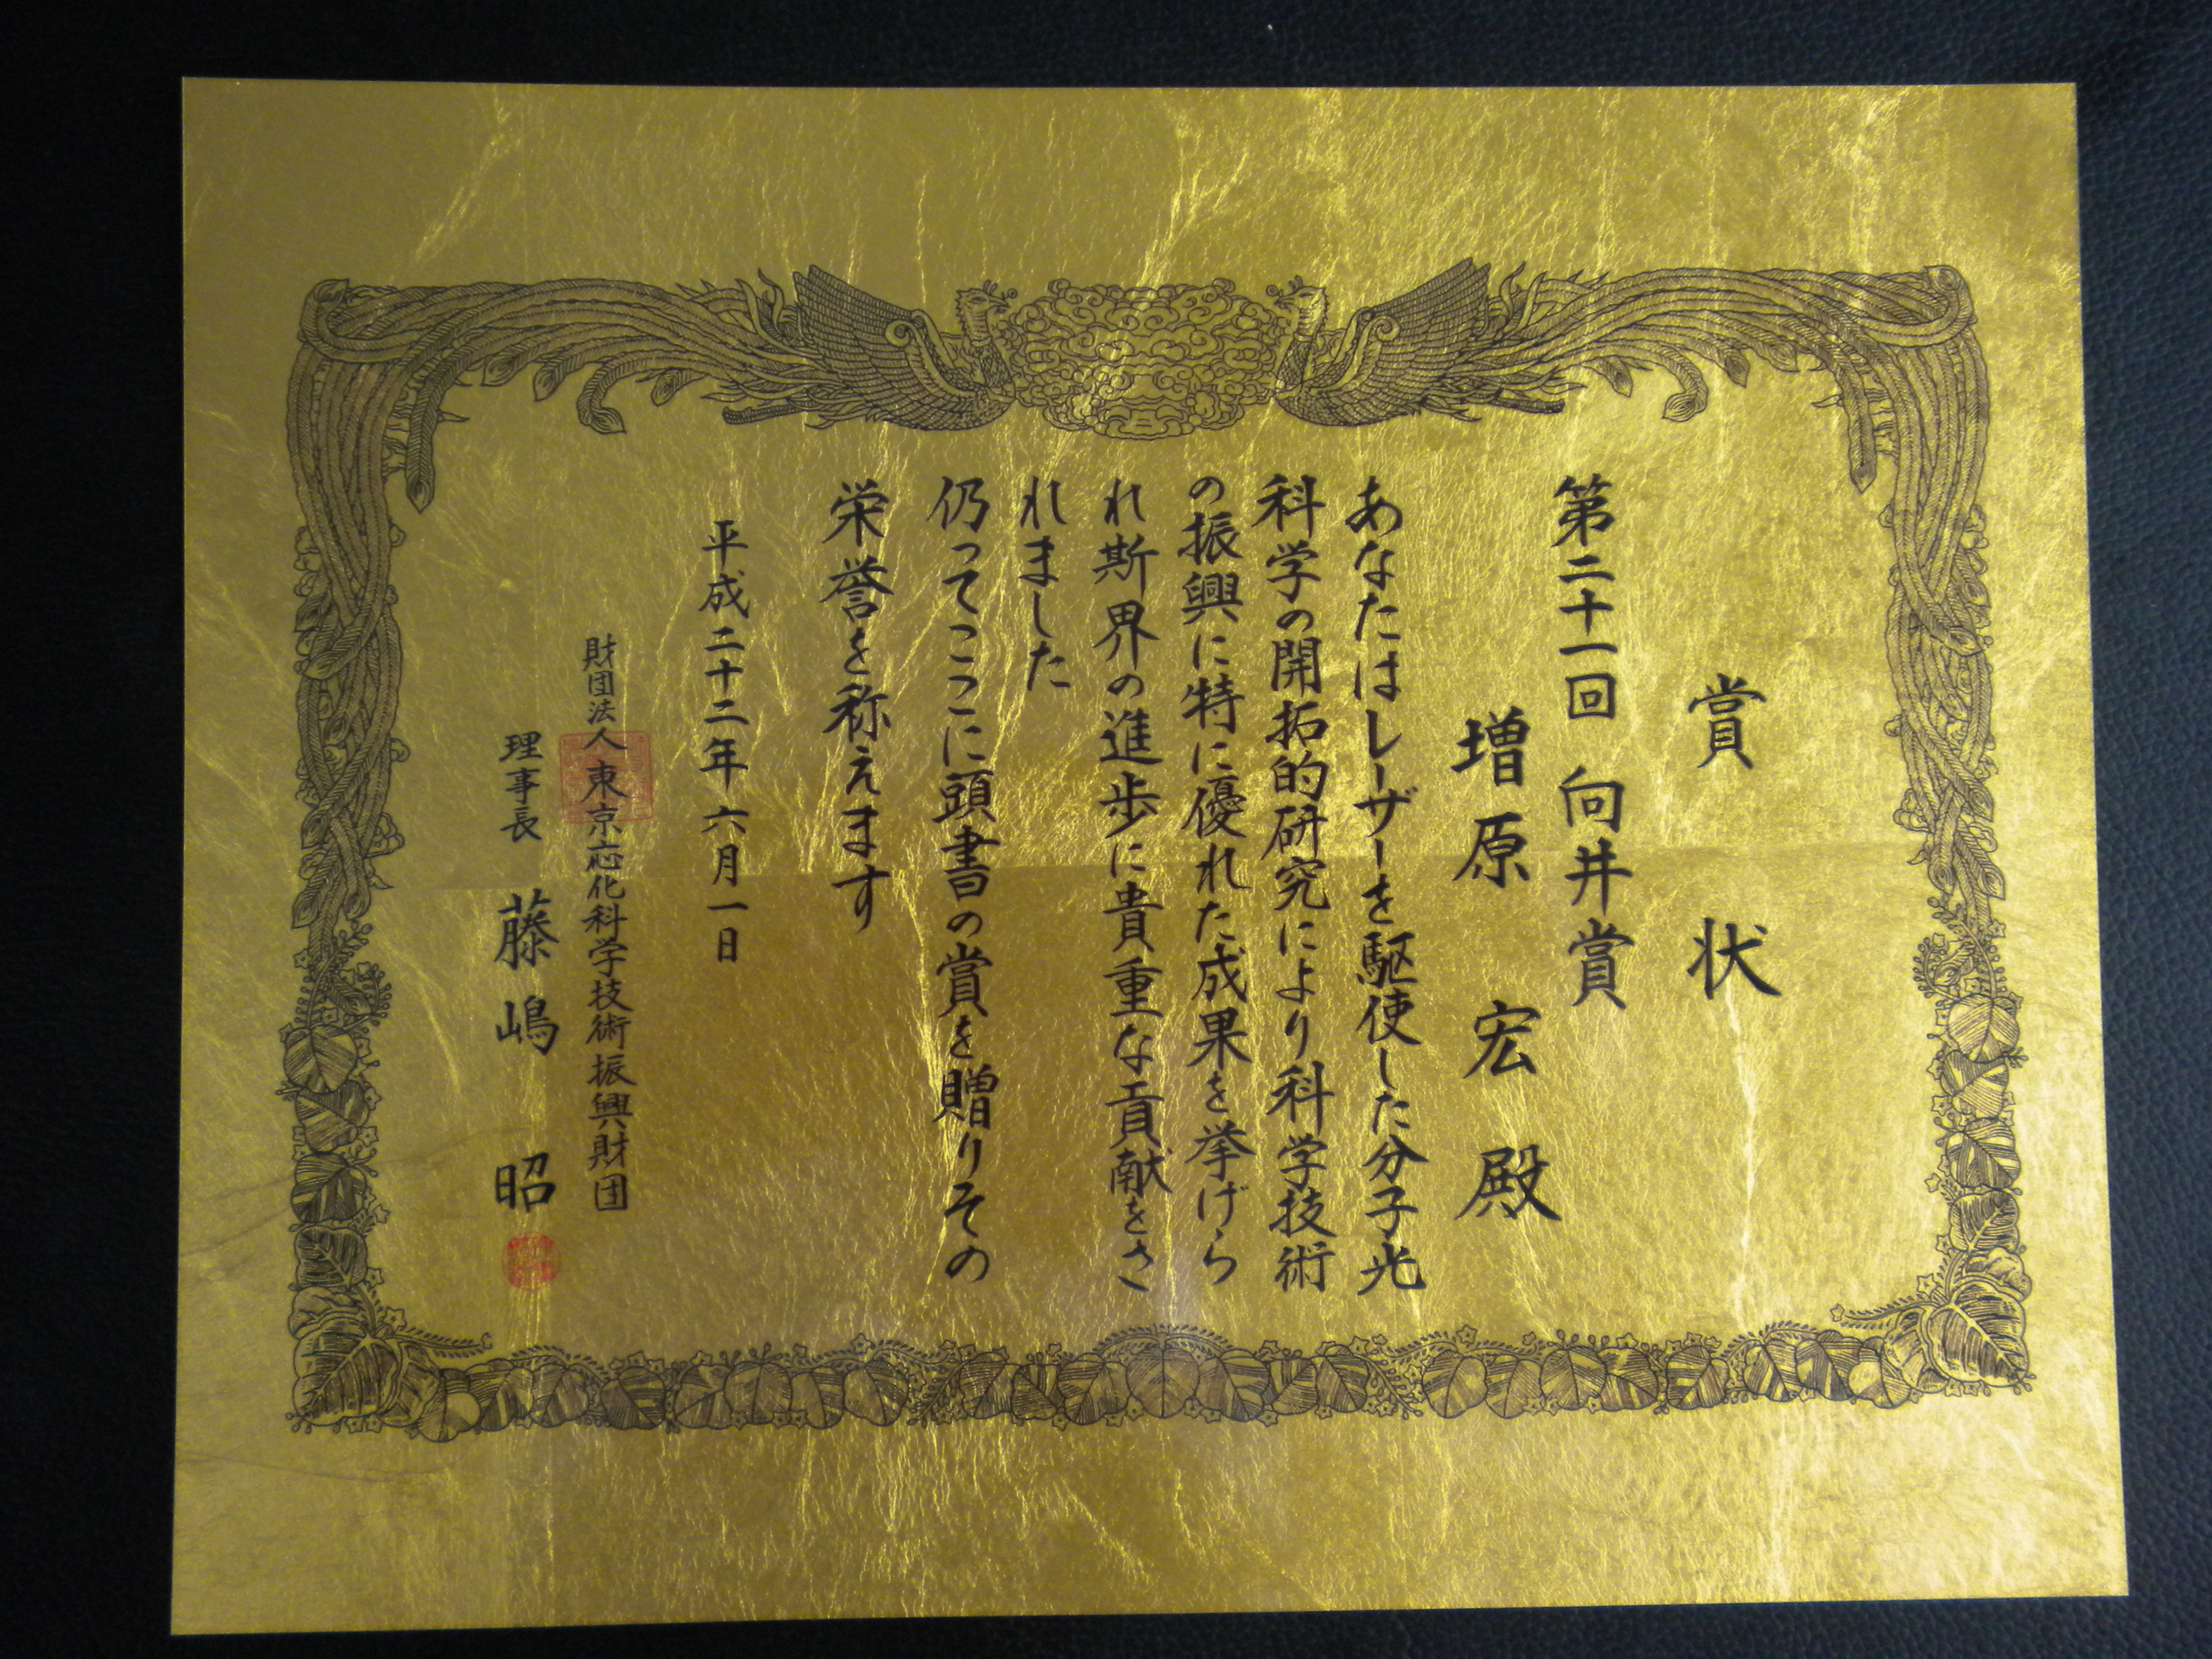 賞状
第二十一回 向井賞
増原 宏 殿
あなたはレーザーを駆使した分子光
科学の開拓的研究により科学技術
の振興に特に優れた成果を挙げら
れ斯界の進歩に貴重な貢献をさ
れました
仍ってここに頭書の賞を贈りその
栄誉を称えます
平成二十二年六月一日
財団法人東京応化科学技術振興財団
理事長 藤嶋 昭